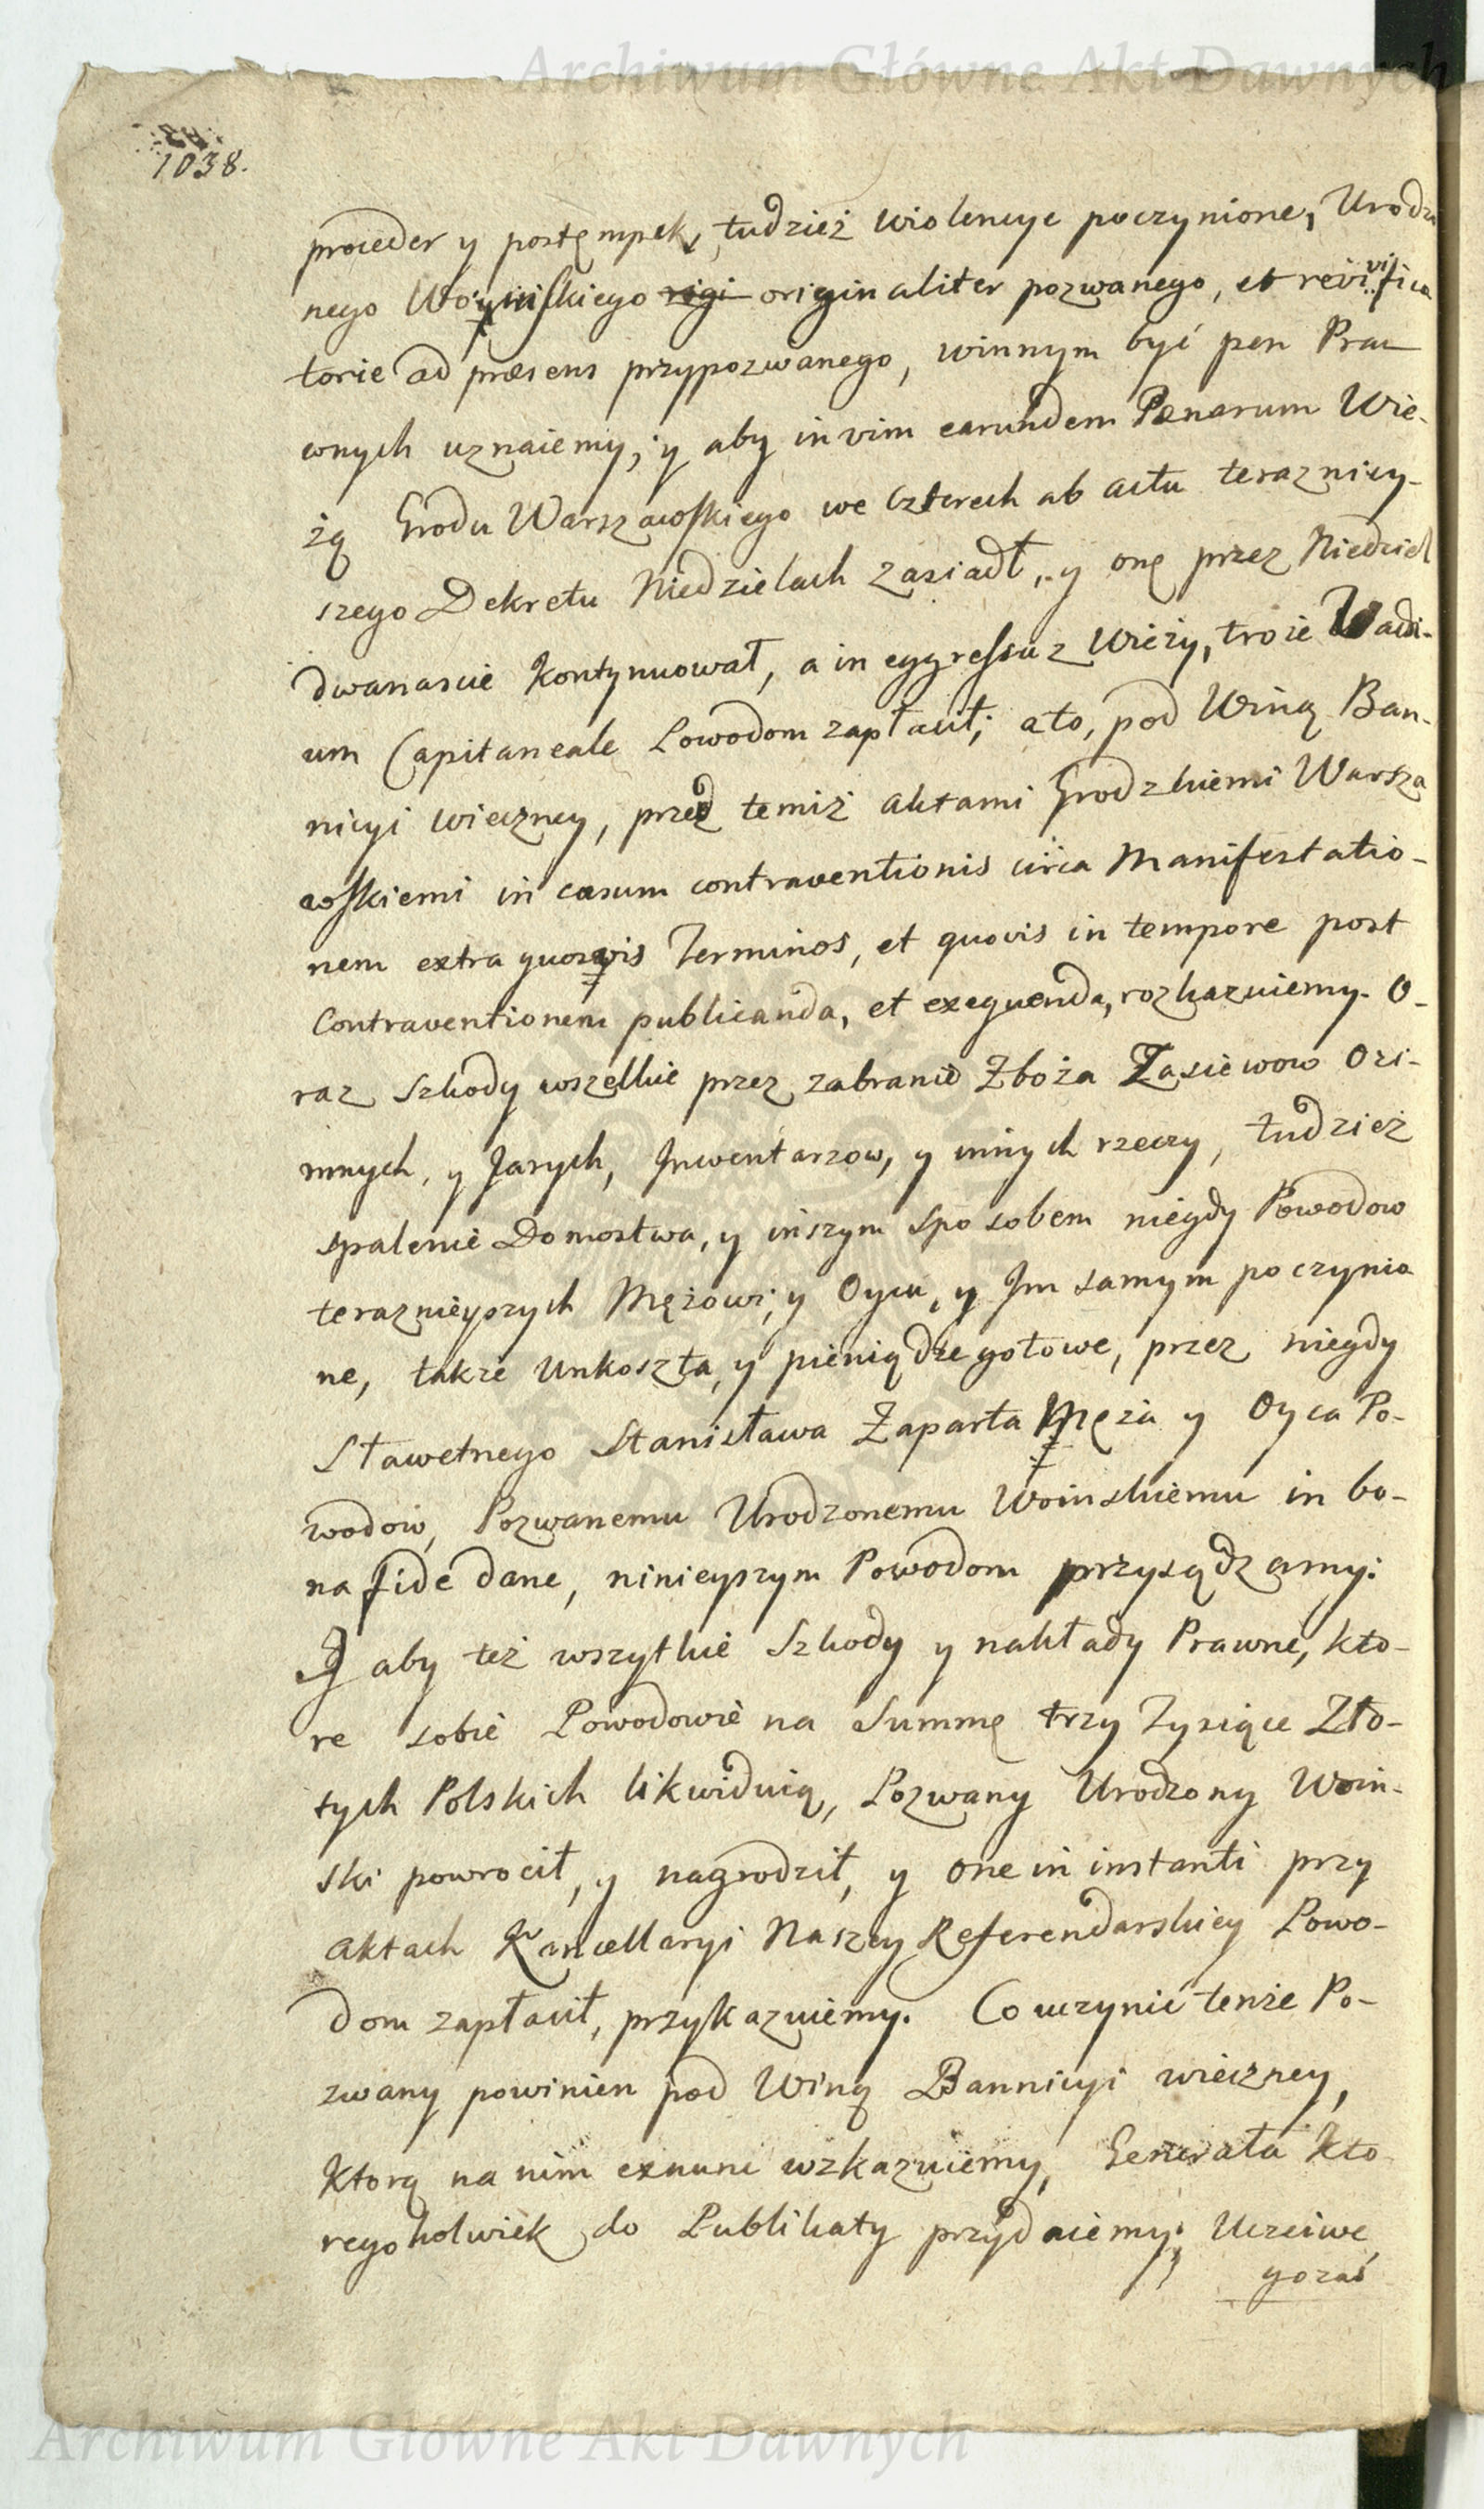 Archiwum Główne Akt Dawnych
1038.
proceder y postęmpek, tudzież wiolencye poczynione, Urodzo
nego Woyniskiego rigi originaliter pozwanego, et reivivifica
torie ad præsens przypozwanego, winnym być pen Praw
wnych uznaiemy; y aby in vim earundem Pænarum Wie-
żą Grodu Warszawskiego we czterech ab actu terazniey-
szego Dekretu Niedzielach zasiadł, y onę przez Niedziel
dwanascie kontynuował, a in eggressu z Wieży, troie Vadi-
um Capitaneale Powodom zapłacił; a to, pod Winą Ban-
nicyi wieczney, przed temiż Aktami Grodzkiemi Warsza
wskiemi in casum contraventionis circa Manifestatio-
nem extra quosvis Terminos, et quovis in tempore post
Contraventionem publicanda, et exequenda, rozkazuiemy. O-
raz Szkody wszelkie przez zabranie Zboża Zasiewow Ozi-
mnych, y Jarych, Jnwentarzow, y innych rzeczy, tudzież
spalenie Domostwa, y inszym sposobem niegdy Powodow
teraznieyszych Mężowi, y Oycu, y Jm samym poczynio
ne, także Unkoszta, y pieniądze gotowe, przez niegdy
Sławetnego Stanisława Zaparta Męża y Oyca Po-
wodow, Pozwanemu Urodzonemu Woinskiemu in bo-
na fide dane, ninieyszym Powodom przysądzamy:
J aby też wszytkie Szkody y nakłady Prawne, kto-
re sobie Powodowie na Summę trzy Tysiące Zło-
tych Polskich likwiduią, Pozwany Urodzony Woin-
ski powrocił, y nagrodził, y one in instanti przy
Aktach Kancellaryi Naszey Referendarskiey Powo-
dom zapłacił, przykazuiemy. Co uczynić tenże Po-
zwany powinien pod Winą Bannicyi wieczney,
Ktorą na nim exnunc wskazuiemy, Generała Kto
regokolwiek do Publikaty przydaiemy; Uczciwe
goraś
Archiwum Główne Akt Dawnych